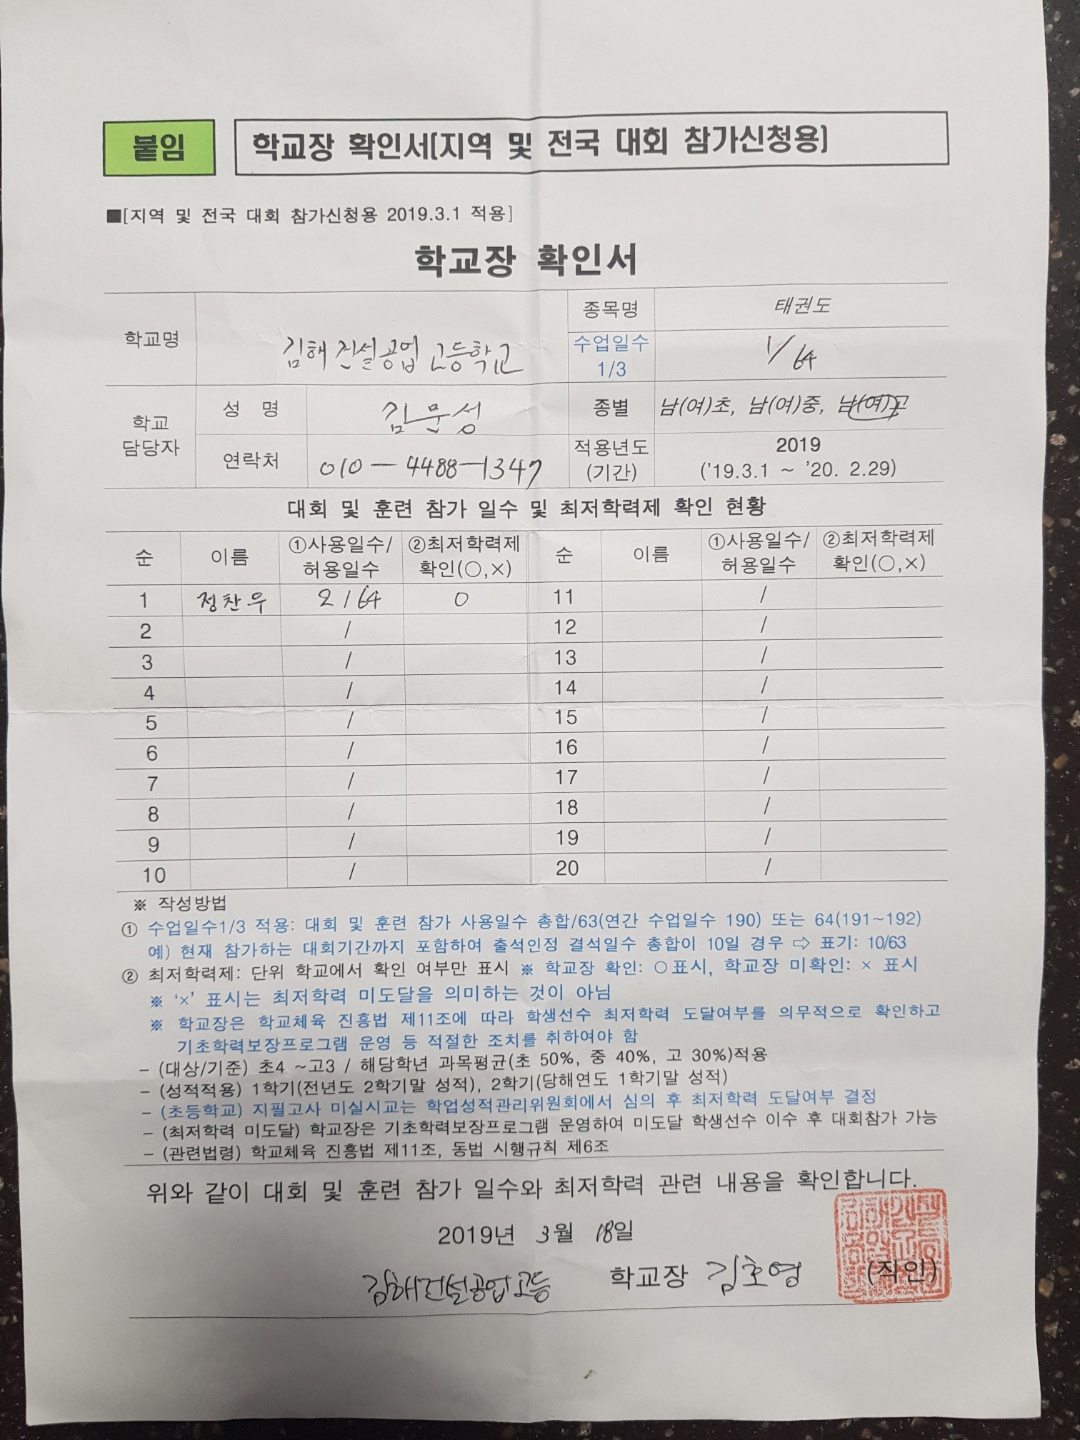 붙임
학교장 확인서[지역 및 전국 대회 참가신청용]
■[지역 및 전국 대회 참가신청용 2019.3.1 적용]
학교장 확인서
학교명 김해건설공업고등학교 종목명 태권도
수업일수 1/3 1/64
학교 담당자 성 명 김문성 종별 남(여)초, 남(여)중, 남(여)고
연락처 010-4488-1347 적용년도 (기간) 2019 ('19.3.1 ~ '20. 2.29)
대회 및 훈련 참가 일수 및 최저학력제 확인 현황
순 이름 ①사용일수/허용일수 ②최저학력제 확인(○,×) 순 이름 ①사용일수/허용일수 ②최저학력제 확인(○,×)
1 정찬우 2/64 ○ 11 /
2 / 12 /
3 / 13 /
4 / 14 /
5 / 15 /
6 / 16 /
7 / 17 /
8 / 18 /
9 / 19 /
10 / 20 /
※ 작성방법
① 수업일수1/3 적용: 대회 및 훈련 참가 사용일수 총합/63(연간 수업일수 190) 또는 64(191~192)
예) 현재 참가하는 대회기간까지 포함하여 출석인정 결석일수 총합이 10일 경우 ⇨ 표기: 10/63
② 최저학력제: 단위 학교에서 확인 여부만 표시 ※ 학교장 확인: ○표시, 학교장 미확인: × 표시
※ '×' 표시는 최저학력 미도달을 의미하는 것이 아님
※ 학교장은 학교체육 진흥법 제11조에 따라 학생선수 최저학력 도달여부를 의무적으로 확인하고
기초학력보장프로그램 운영 등 적절한 조치를 취하여야 함
- (대상/기준) 초4 ~고3 / 해당학년 과목평균(초 50%, 중 40%, 고 30%)적용
- (성적적용) 1학기(전년도 2학기말 성적), 2학기(당해연도 1학기말 성적)
- (초등학교) 지필고사 미실시교는 학업성적관리위원회에서 심의 후 최저학력 도달여부 결정
- (최저학력 미도달) 학교장은 기초학력보장프로그램 운영하여 미도달 학생선수 이수 후 대회참가 가능
- (관련법령) 학교체육 진흥법 제11조, 동법 시행규칙 제6조
위와 같이 대회 및 훈련 참가 일수와 최저학력 관련 내용을 확인합니다.
2019년 3월 18일
김해건설공업고등 학교장 김호영 (직인)